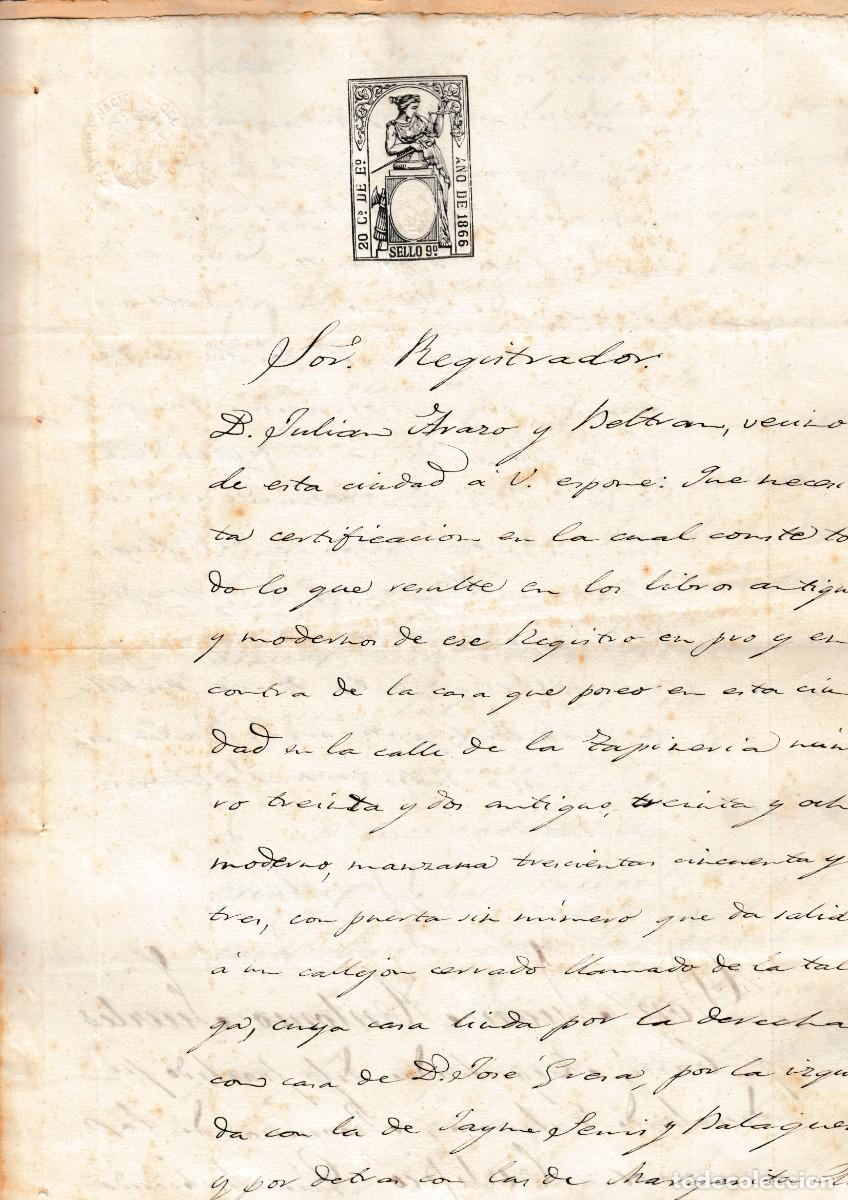 20 Cs DE Eo
AÑO DE 1866
SELLO 9º
Sor. Registrador.
D. Julian Arazo y Beltran, vecino
de esta ciudad á V. espone: Que necesi
ta certificacion en la cual conste to
do lo que resulte en los libros antigu
y modernos de ese Registro en pro y en
contra de la casa que poseo en esta ciu
dad en la calle de la Tapineria núm
ro treinta y dos antiguo, treinta y och
moderno, manzana trescientas cincuenta y
tres, con puerta sin número que da salid
á un callejon cerrado llamado de la tal
ga, cuya casa linda por la derecha
con casa de D. José Gresa, por la izqu
da con la de Jayme Semis y Balaguer
y por detras con las de Margarita
todocoleccion